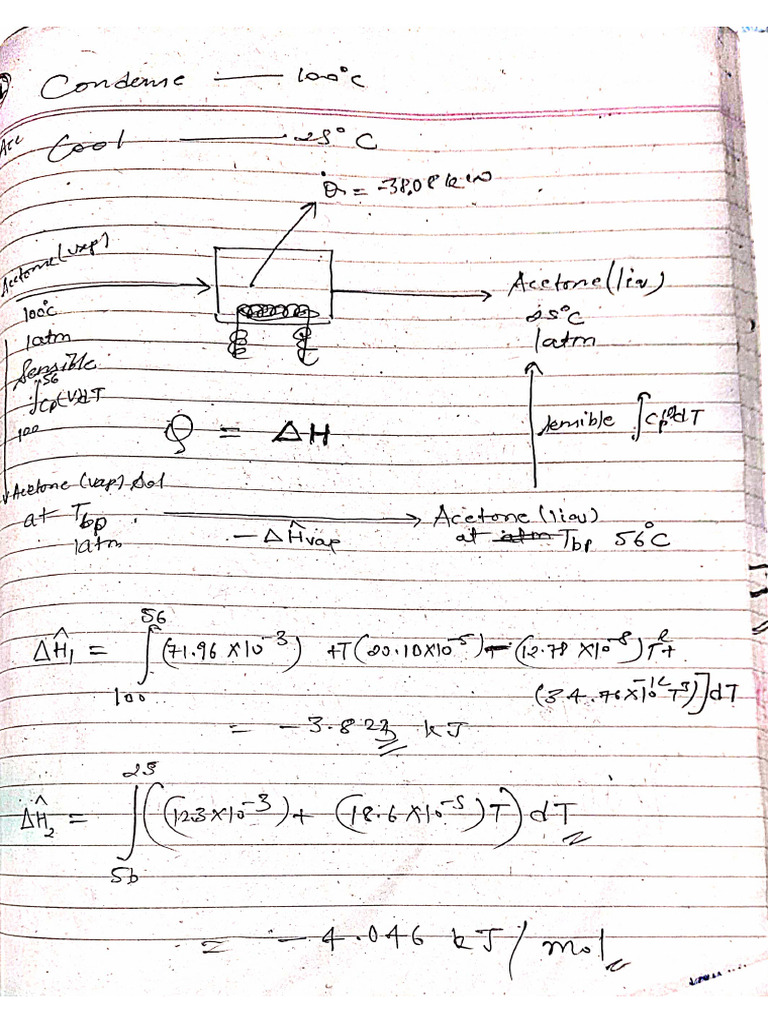 Condense — 100°C
Acc
Cool — 25°C
Q̇ = -38.08 kW
Acetone (vap)
100°C
1atm
Acetone (liq)
25°C
1atm
Sensible
∫₁₀₀⁵⁶ Cp(v)dT
sensible ∫Cp(l)dT
Q = ΔH
Acetone (vap)
at Tbp
1atm
-ΔĤvap
Acetone (liq)
at Tbp 56°C
ΔĤ₁ = ∫₁₀₀⁵⁶ (71.96×10⁻³) +T(20.10×10⁻⁵) - (12.78×10⁻⁸)T²+
(34.76×10⁻¹²T³)]dT
= -3.823 kJ
ΔĤ₂ = ∫₅₆²⁵((123×10⁻³)+(18.6×10⁻⁵)T)dT
= -4.046 kJ/mol